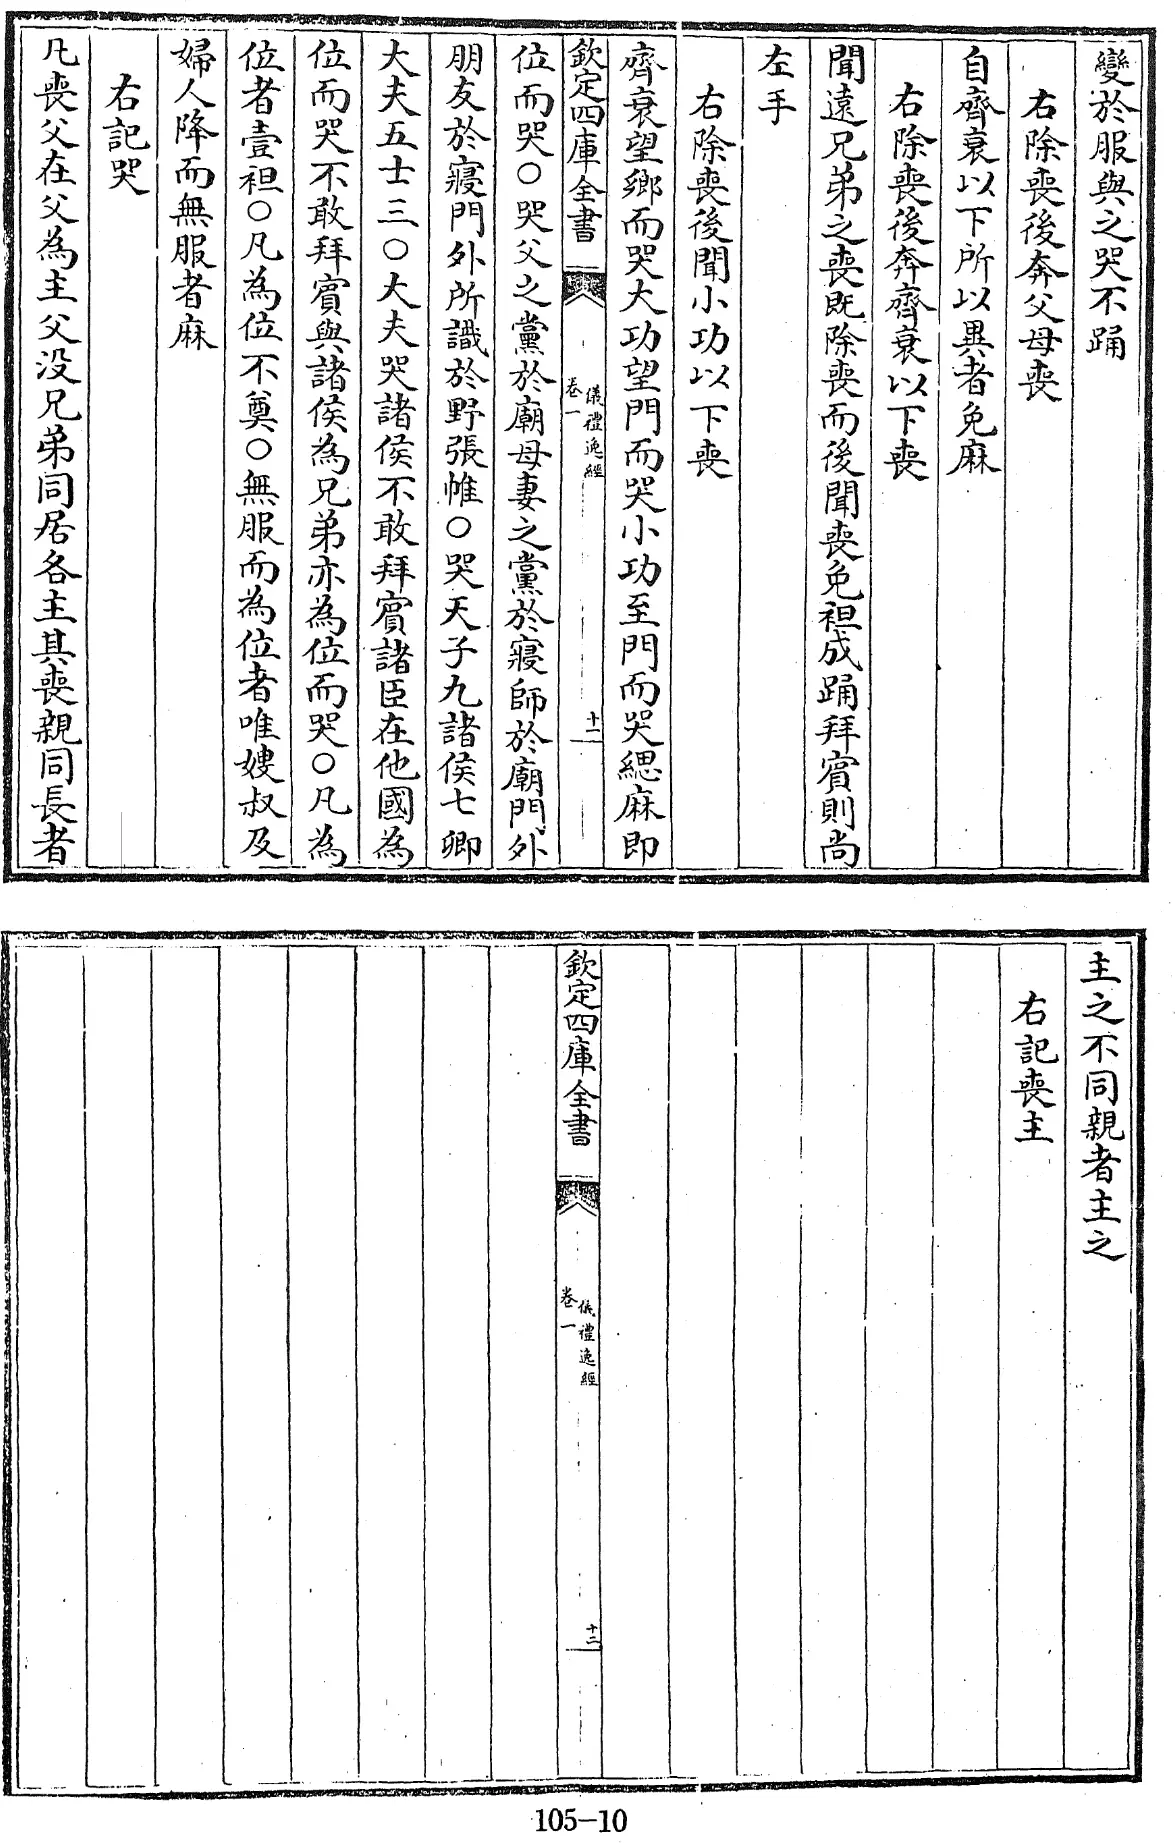 變於服與之哭不踊
右除喪後奔父母喪
自齊衰以下所以異者免麻
右除喪後奔齊衰以下喪
聞遠兄弟之喪既除喪而後聞喪免袒成踊拜賔則尚
左手
右除喪後聞小功以下喪
齊衰望鄉而哭大功望門而哭小功至門而哭緦麻即
欽定四庫全書
儀禮逸經
卷一
十一
位而哭○哭父之黨於廟母妻之黨於寢師於廟門外
朋友於寢門外所識於野張帷○哭天子九諸侯七卿
大夫五士三○大夫哭諸侯不敢拜賔諸臣在他國為
位而哭不敢拜賔與諸侯為兄弟亦為位而哭○凡為
位者壹袒○凡為位不奠○無服而為位者唯嫂叔及
婦人降而無服者麻
右記哭
凡喪父在父為主父没兄弟同居各主其喪親同長者
主之不同親者主之
右記喪主
欽定四庫全書
儀禮逸經
卷一
十二
105-10